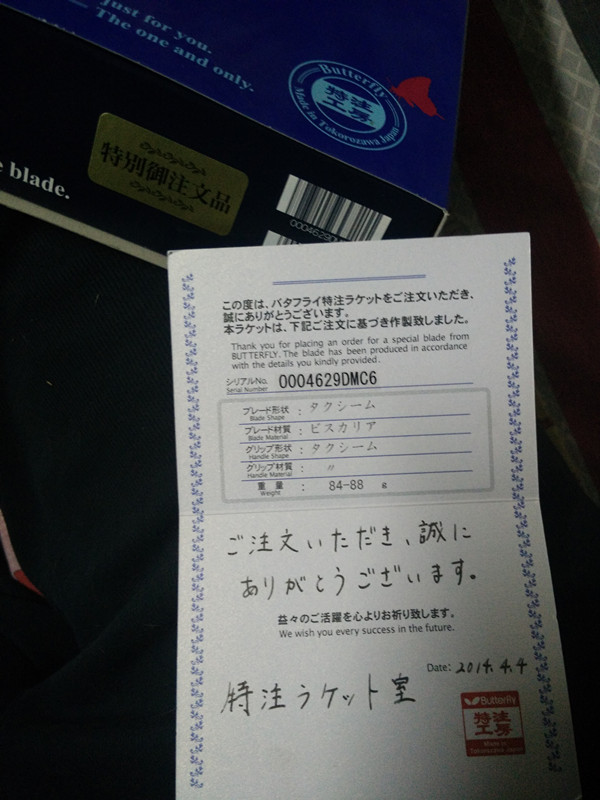 Just for you.
— The one and only.
Butterfly
特注
工房
Made in Tokorozawa Japan
blade.
特別御注文品
00046290
この度は、バタフライ特注ラケットをご注文いただき、
誠にありがとうございます。
本ラケットは、下記ご注文に基づき作製致しました。
Thank you for placing an order for a special blade from
BUTTERFLY. The blade has been produced in accordance
with the details you kindly provided.
シリアルNo. 0004629DMC6
Serial Number
ブレード形状 : タクシーム
Blade Shape
ブレード材質 : ビスカリア
Blade Material
グリップ形状 : タクシーム
Handle Shape
グリップ材質 : 〃
Handle Material
重量 : 84-88 g
Weight
ご注文いただき、誠に
ありがとうございます。
益々のご活躍を心よりお祈り致します。
We wish you every success in the future.
Date: 2014.4.4
特注ラケット室
Butterfly
特注
工房
Made in
Tokorozawa Japan